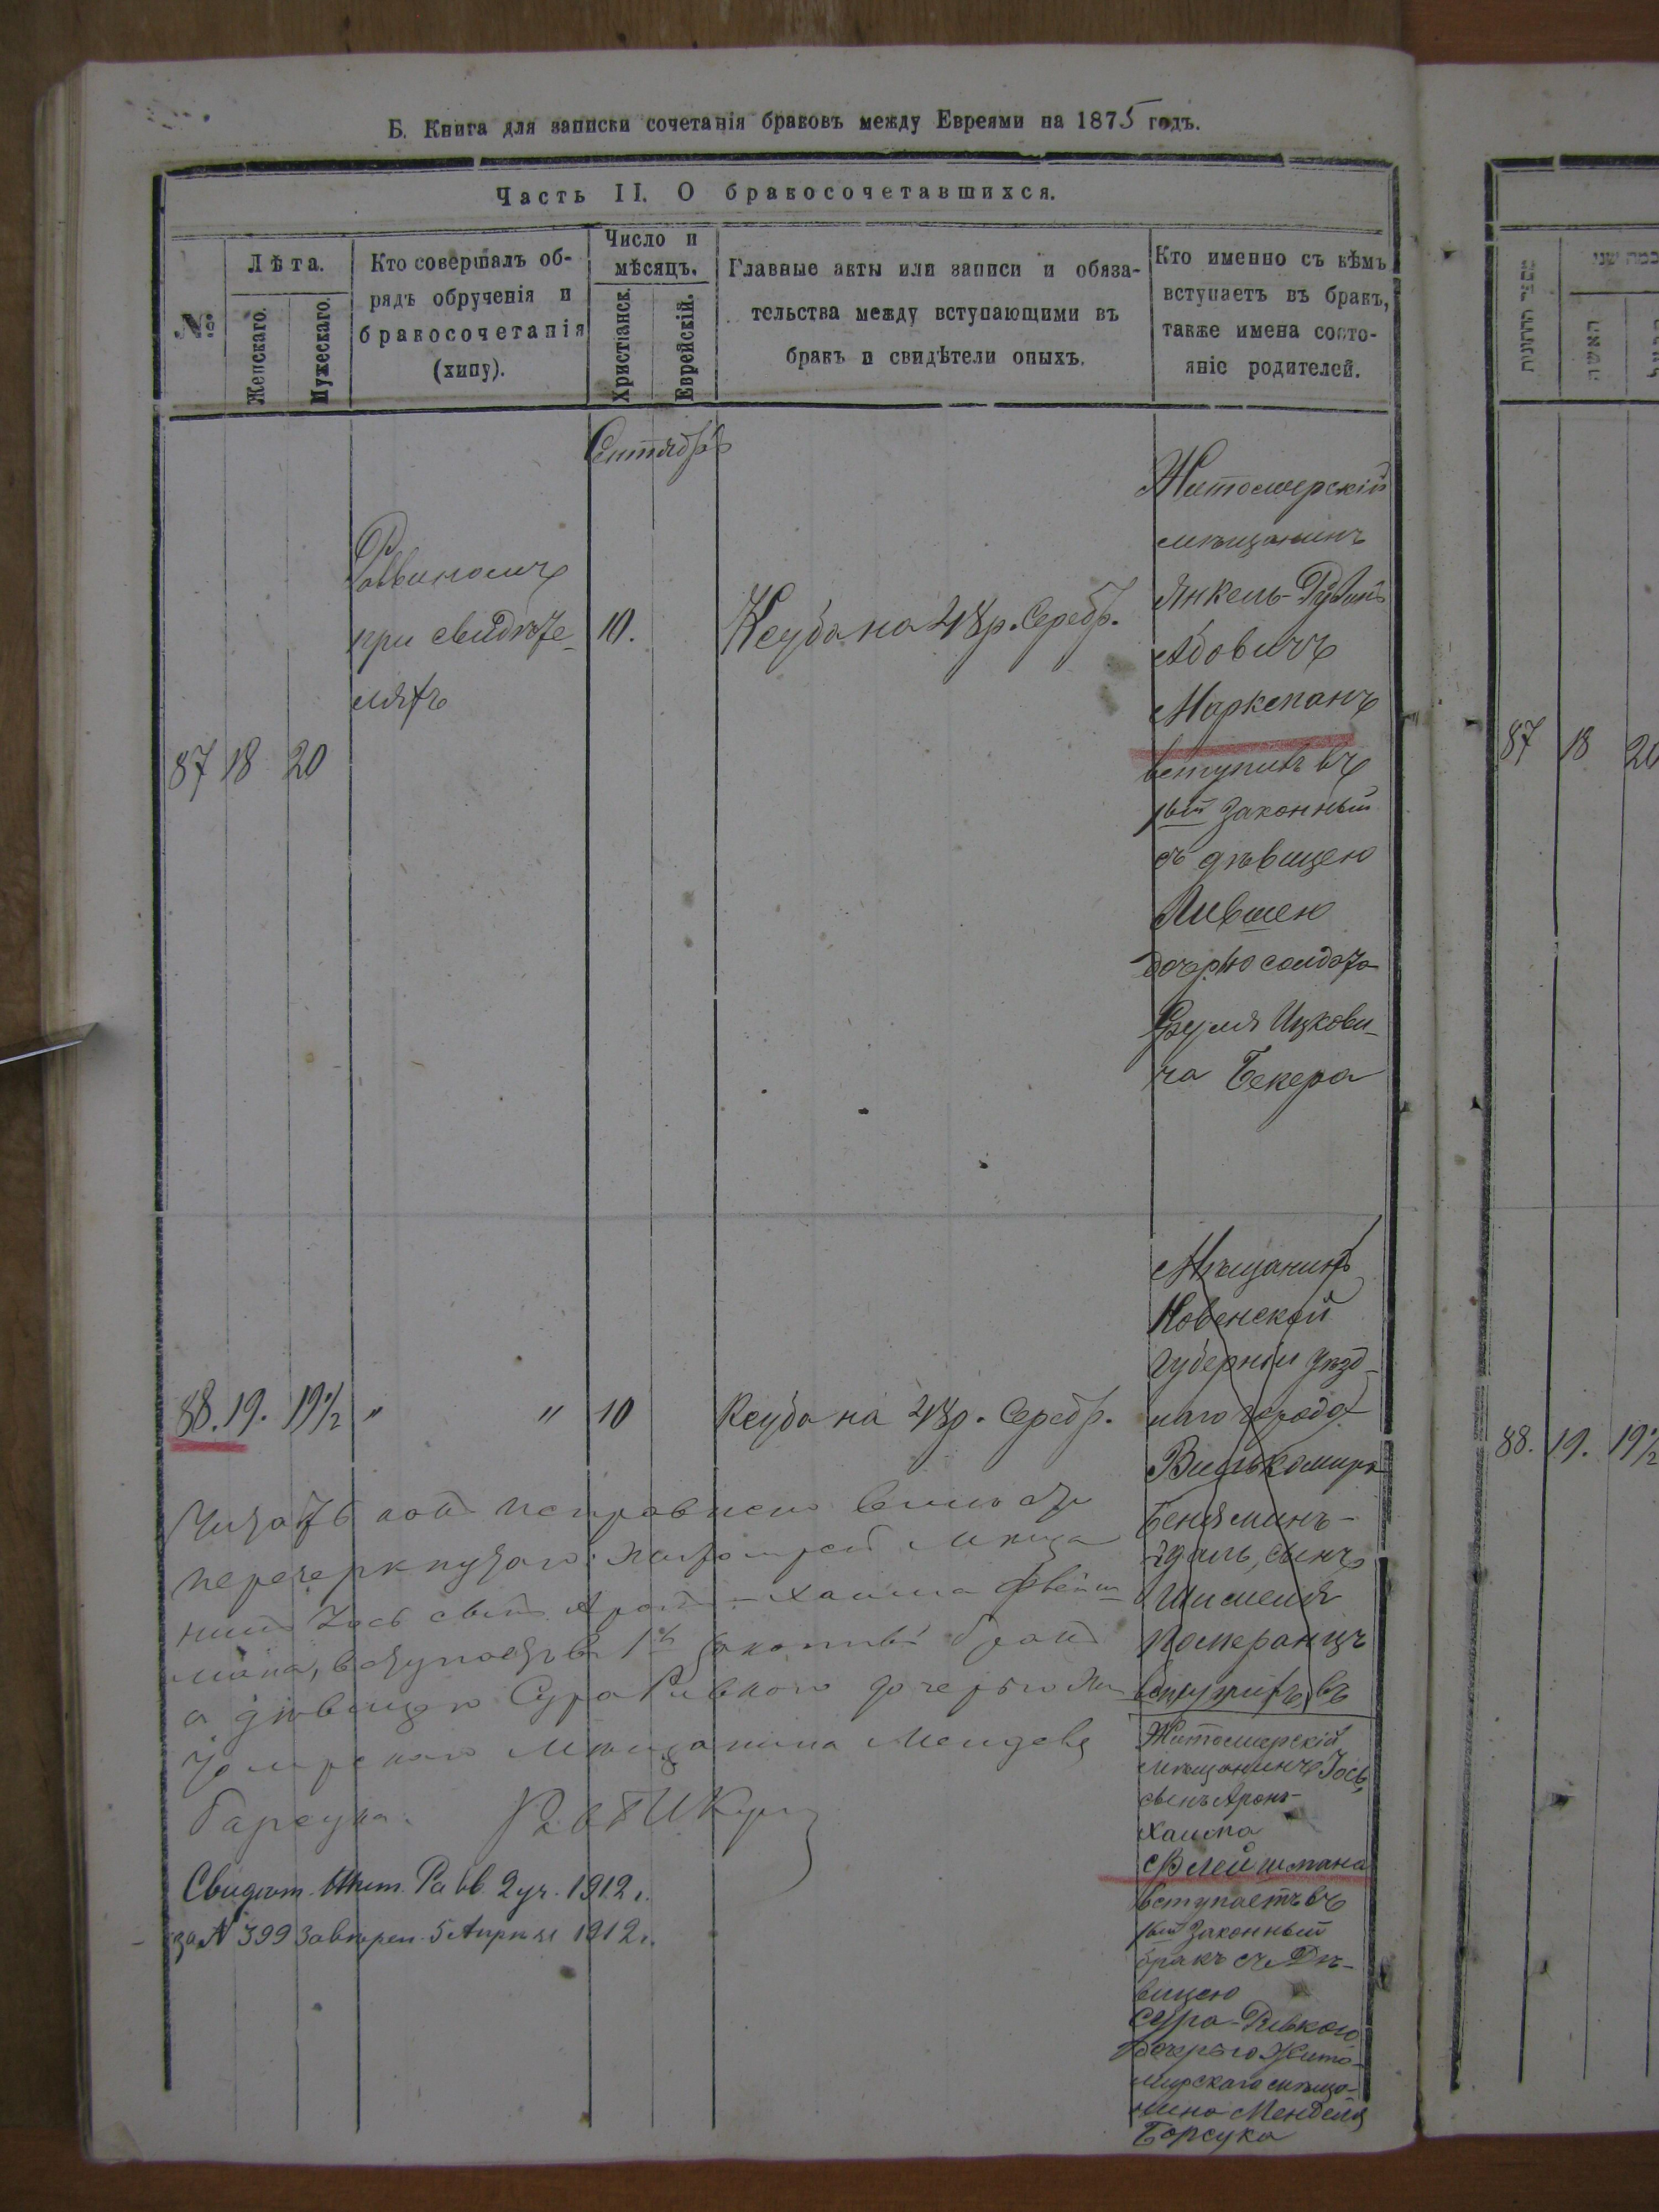 Б. Книга для записки сочетанія браковъ между Евреями на 1875 годъ.
Часть II. О бракосочетавшихся.
№
Лѣта.
Женскаго.
Мужескаго.
Кто совершалъ об-
рядъ обрученія и
бракосочетанія
(хипу).
Число и
мѣсяцъ.
Христіанск.
Еврейскій.
Главные акты или записи и обяза-
тельства между вступающими въ
бракъ и свидѣтели оныхъ.
Кто именно съ кѣмъ
вступаетъ въ бракъ,
также имена состо-
яніе родителей.
Сентябрь
87 18 20
Раввиномъ
при свидѣте-
ляхъ
10.
Ксуба на 48 р. Серебр.
Житомирскій
мѣщанинъ
Янкель-Рувинъ
Абовичъ
Маркманъ
вступилъ въ
1ый законный
съ дѣвицею
Ривкою
дочерью солдата
Сруля Ицкови-
ча Бекера
88. 19. 19½ " " 10
Ксуба на 48 р. Серебр.
Мѣщанинъ
Ковенской
губерніи уѣзд-
наго города
Вилькомира
Беньяминъ-
Идель, сынъ
Шмеля
Померанцъ
вступилъ въ
Житомирскій
мѣщанинъ Іось,
сынъ Аронъ-
Хаима
Флейшмана
вступаетъ въ
1ый законный
бракъ съ Дѣ-
вицею
Сура-Ривкою
дочерью Жито-
мирскаго мѣща-
нина Менделя
Борсука
Читать какъ исправлено вмѣсто
перечеркнутаго: Житомирскій мѣща
нинъ Іось сынъ Аронъ-Хаима Флейш-
мана, вступаетъ въ 1й законный бракъ
съ дѣвицею Сура Ривкою дочерью Жи
томирскаго мѣщанина Менделя
Барсука.
Свидѣт. Жит. Равв. 2 уч. 1912 г.
за № 399 Завѣрен. 5 Апрѣля 1912 г.
87 18 20
88. 19. 19½